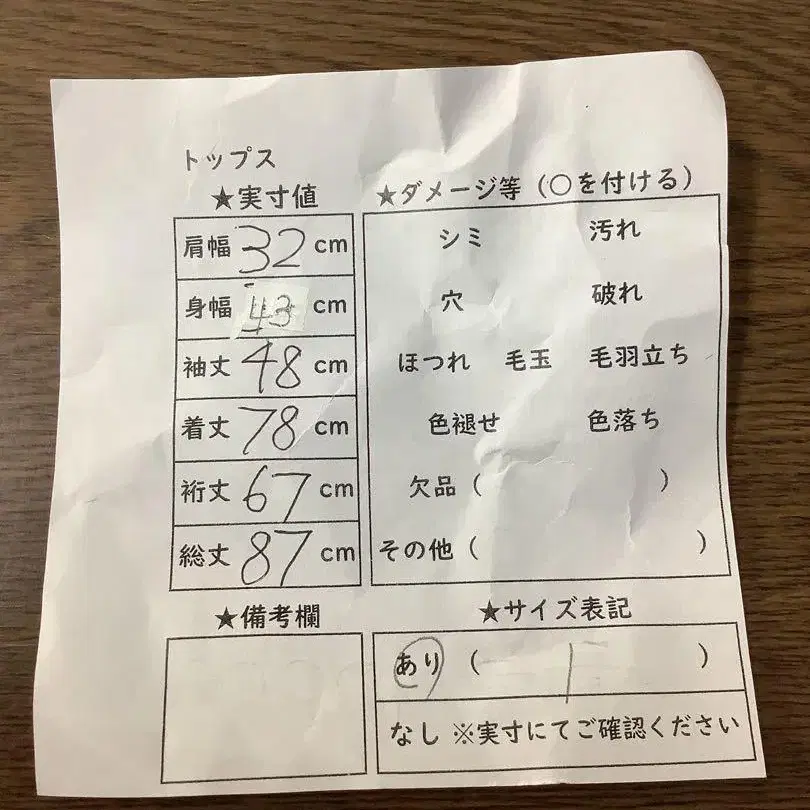 トップス
★実寸値
肩幅 32 cm
身幅 43 cm
袖丈 48 cm
着丈 78 cm
裄丈 67 cm
総丈 87 cm
★ダメージ等（○を付ける）
シミ 汚れ
穴 破れ
ほつれ 毛玉 毛羽立ち
色褪せ 色落ち
欠品（ ）
その他（ ）
★備考欄
★サイズ表記
あり（ ）
なし ※実寸にてご確認ください